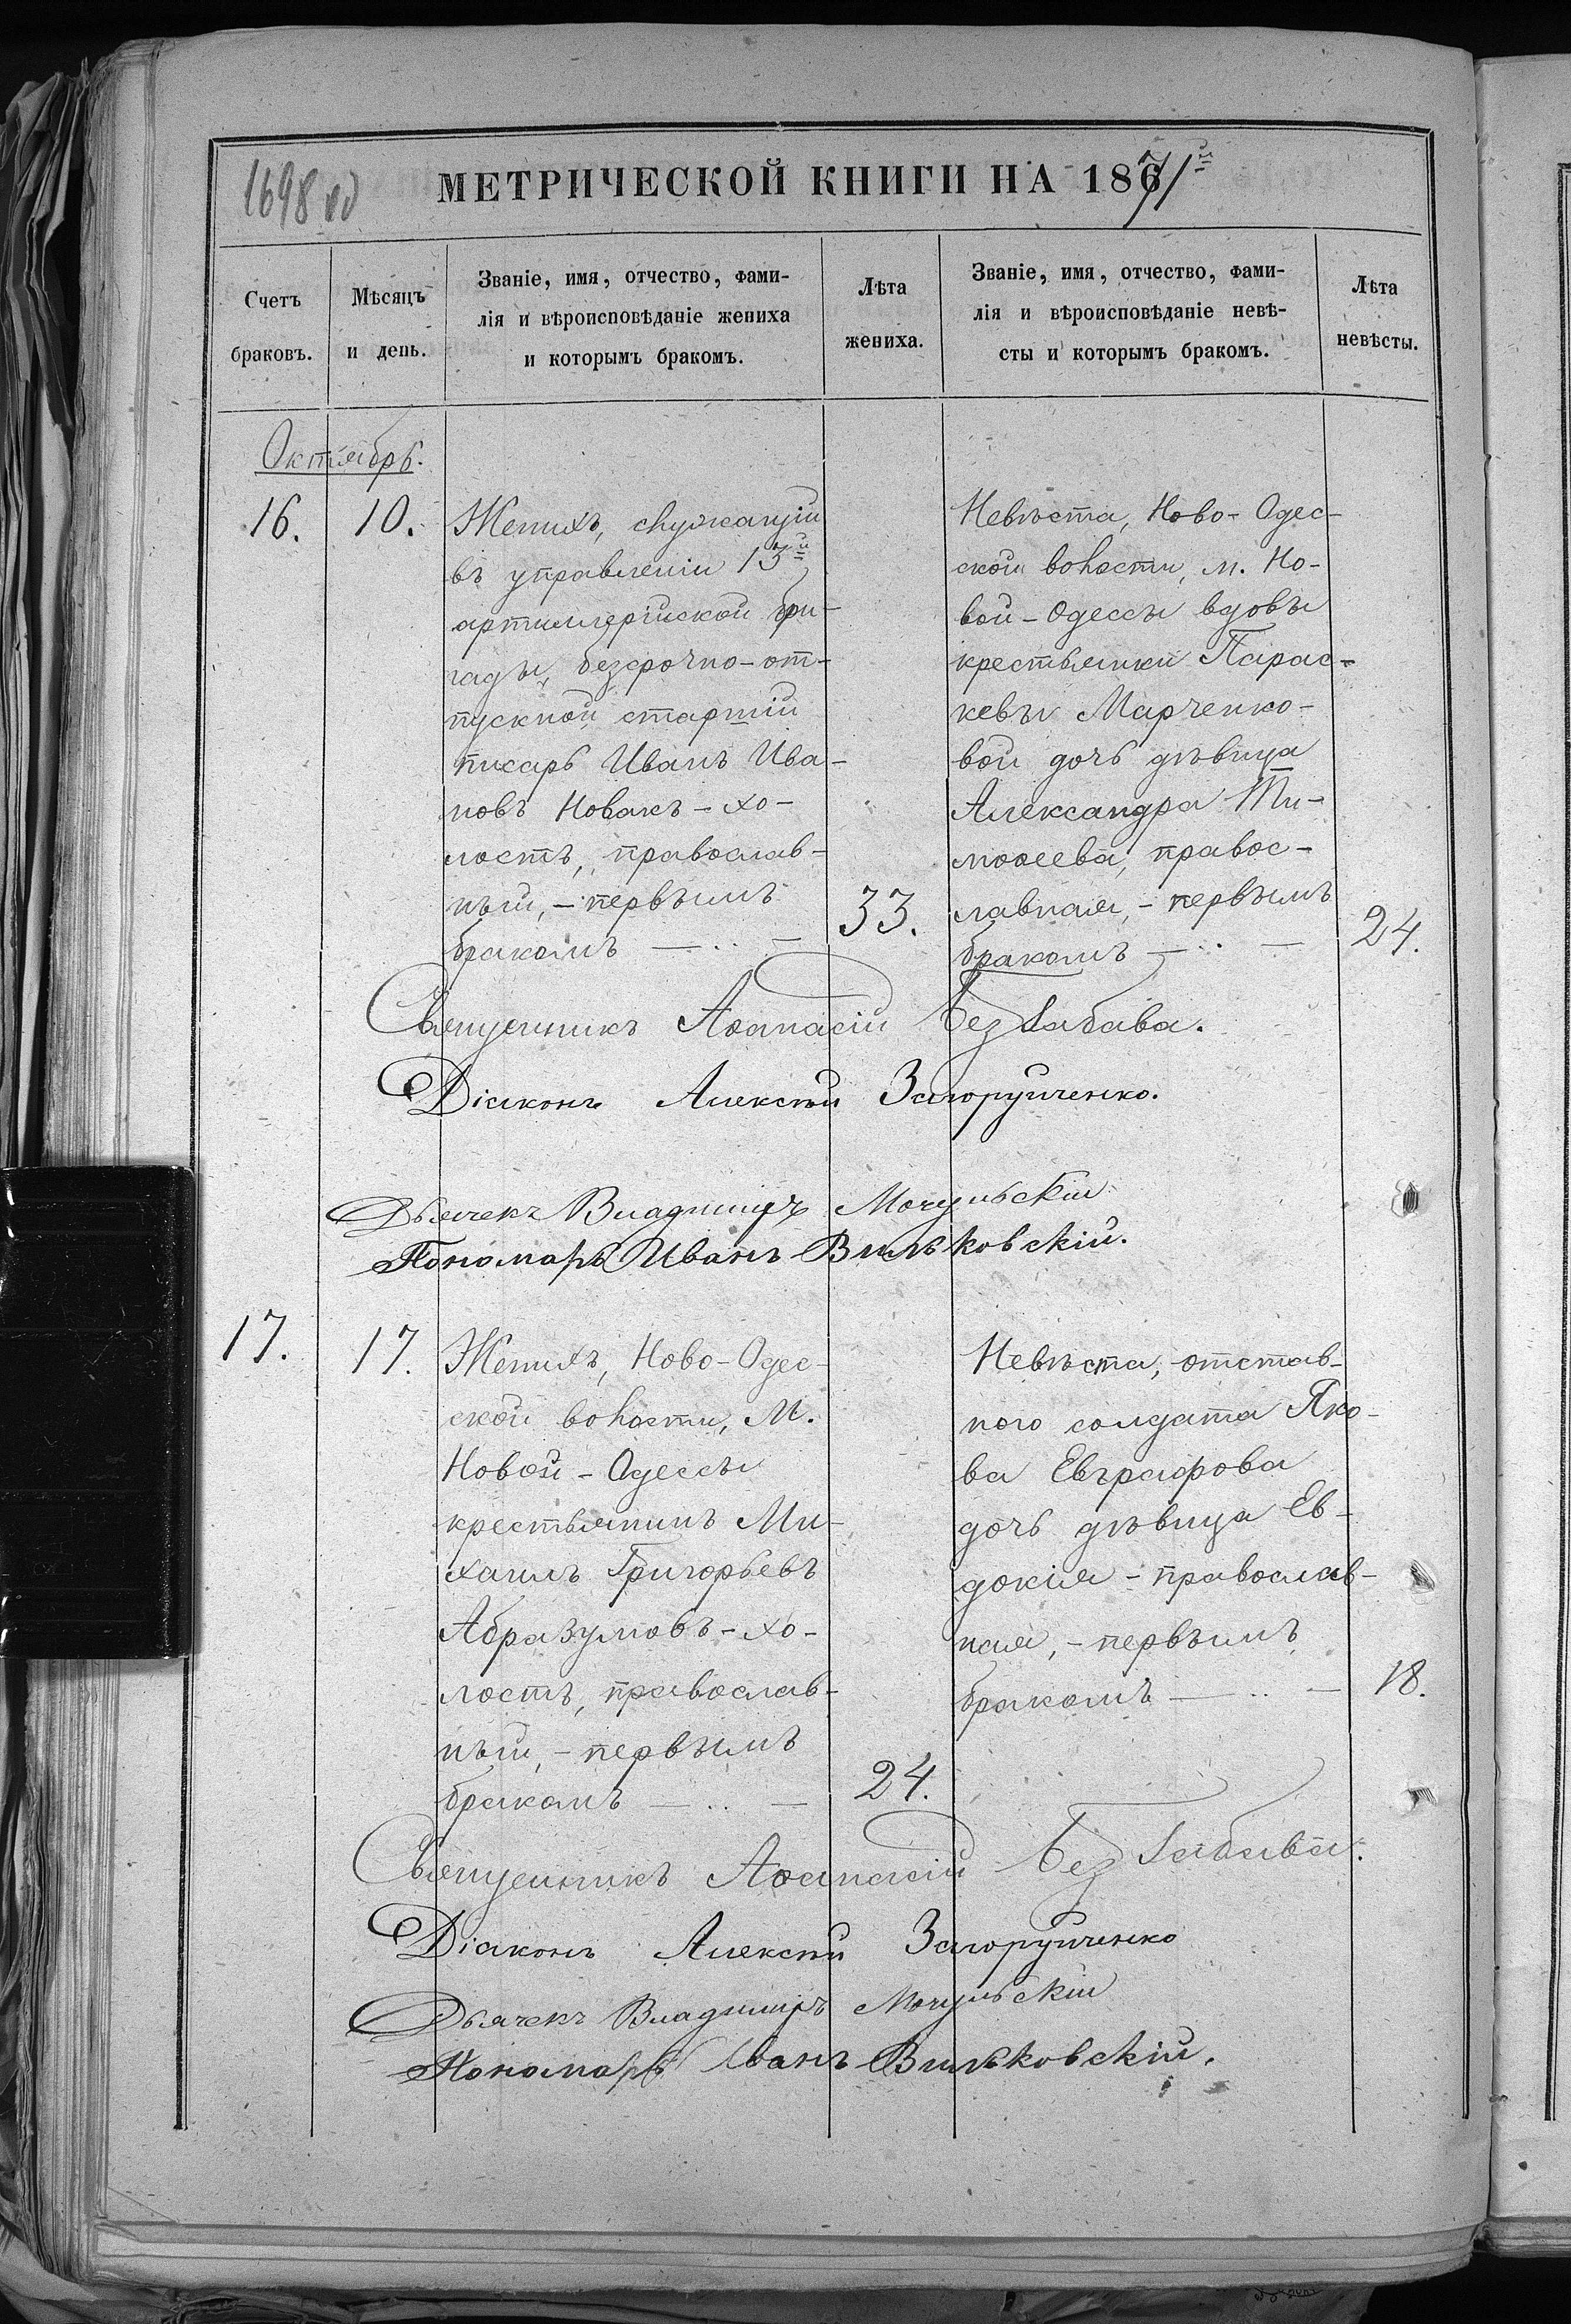 1698 об
МЕТРИЧЕСКОЙ КНИГИ НА 1871й
Счетъ браковъ.
Мѣсяцъ и день.
Званіе, имя, отчество, фами-
лія и вѣроисповѣданіе жениха
и которымъ бракомъ.
Лѣта жениха.
Званіе, имя, отчество, фами-
лія и вѣроисповѣданіе невѣ-
сты и которымъ бракомъ.
Лѣта невѣсты.
Октябрь.
16.
10.
Женихъ, служащій
въ управленіи 13й
артиллерійской бри-
гады, безсрочно-от-
пускной старшій
писарь Иванъ Ива-
новъ Новакъ - хо-
лостъ, православ-
ный, - первымъ
бракомъ
33.
Невѣста, Ново-Одес-
ской волости, м. Но-
вой-Одессы вдовы
крестьянки Парас-
кевы Марченко-
вой дочь дѣвица
Александра Ти-
моѳеева, правос-
лавная, - первымъ
бракомъ
24.
Священникъ Аѳанасій Беззабава.
Діаконъ Алексѣй Загоруйченко.
Дьячекъ Владиміръ Мочульскій
Пономарь Иванъ Вильковскій.
17.
17.
Женихъ, Ново-Одес-
ской волости, М.
Новой-Одессы
крестьянинъ Ми-
хаилъ Григорьевъ
Абразумовъ - хо-
лостъ, православ-
ный, - первымъ
бракомъ
24.
Невѣста, отстав-
ного солдата Яко-
ва Евграфова
дочь дѣвица Ев-
докія - православ-
ная, - первымъ
бракомъ
18.
Священникъ Аѳанасій Беззабава.
Діаконъ Алексѣй Загоруйченко
Дьячекъ Владиміръ Мочульскій
Пономарь Иванъ Вильковскій.